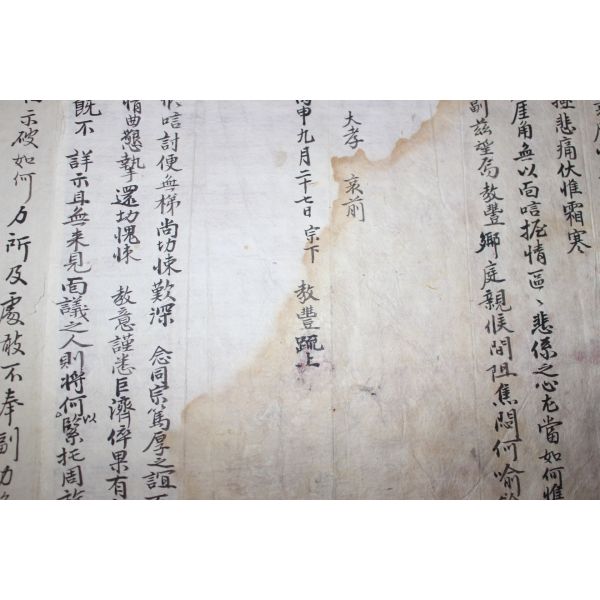 極悲痛伏惟霜寒
崖角無以面唁握情區〻悲係之心尤當如何惟
副玆望爲敎豐鄕庭親候間阻焦悶何喩
大孝 哀前
丙申九月二十七日宗下 敎豐疏上
唁討便無梯尚切悚歎深 念同宗篤厚之誼
情曲懇摯還切愧悚 敎意謹悉巨濟倅果有
旣不 詳示且無来見面議之人則將何以緊托周
示破如何力所及處敢不奉副力